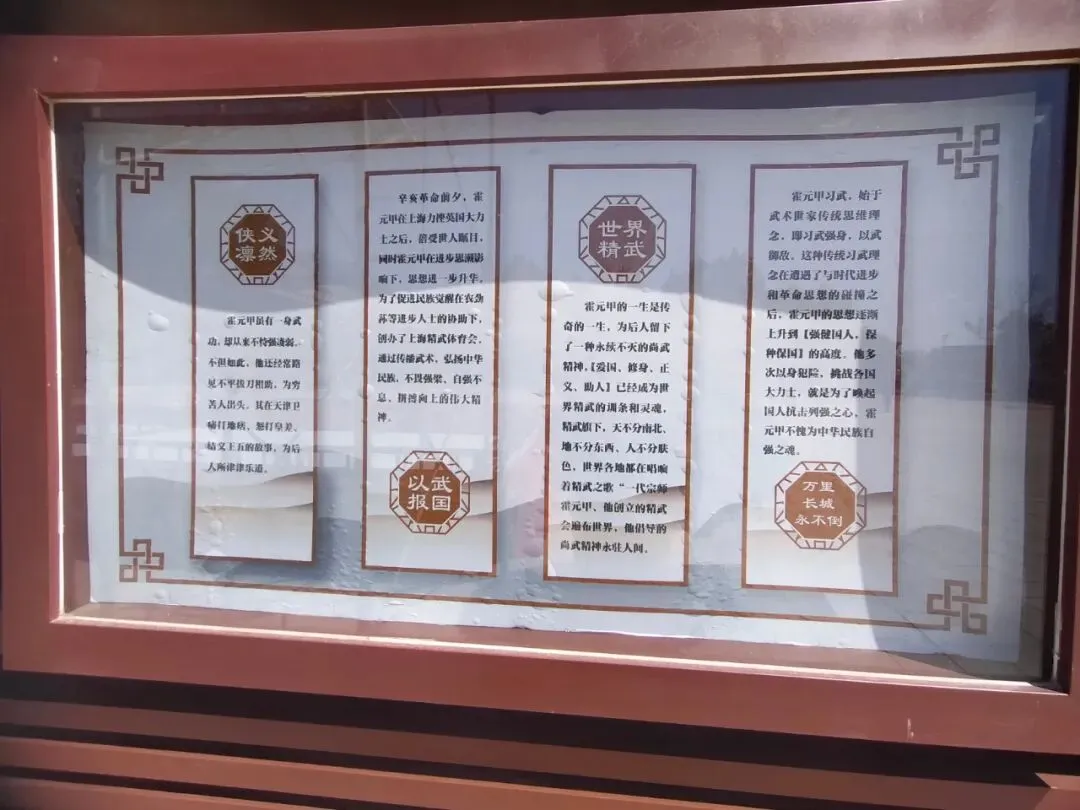 侠义
凛然
霍元甲虽有一身武
功，却从来不恃强凌弱。
不但如此，他还经常路
见不平拔刀相助，为穷
苦人出头。其在天津卫
痛打地痞、怒打皂差、
结义王五的故事，为后
人所津津乐道。
辛亥革命前夕，霍
元甲在上海力挫英国大力
士之后，倍受世人瞩目，
同时霍元甲在进步思潮影
响下，思想进一步升华，
为了促进民族觉醒在农劲
荪等进步人士的协助下，
创办了上海精武体育会。
通过传播武术，弘扬中华
民族，不畏强梁、自强不
息、拼搏向上的伟大精
神。
以武
报国
世界
精武
霍元甲的一生是传
奇的一生，为后人留下
了一种永续不灭的尚武
精神，【爱国、修身、正
义、助人】已经成为世
界精武的训条和灵魂，
精武旗下，天不分南北、
地不分东西、人不分肤
色，世界各地都在唱响
着精武之歌“一代宗师
霍元甲、他创立的精武
会遍布世界，他倡导的
尚武精神永驻人间。
霍元甲习武，始于
武术世家传统思维理
念，即习武强身，以武
御敌。这种传统习武理
念在遭遇了与时代进步
和革命思想的碰撞之
后，霍元甲的思想逐渐
上升到【强健国人，保
种保国】的高度。他多
次以身犯险，挑战各国
大力士，就是为了唤起
国人抗击列强之心，霍
元甲不愧为中华民族自
强之魂。
万里
长城
永不倒